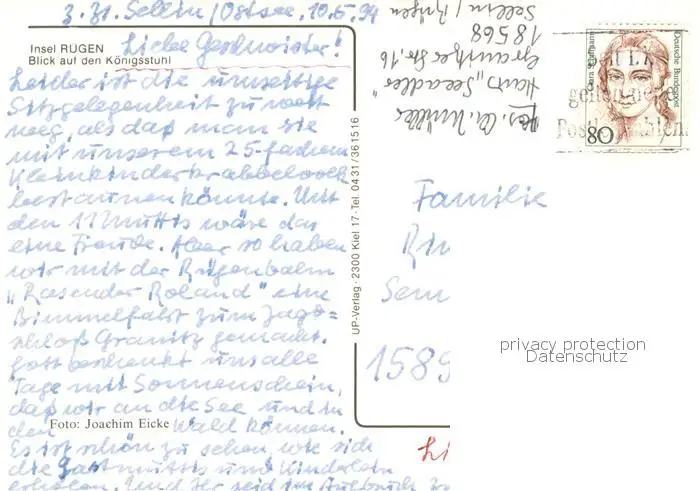 z. Zt. Sellin/Ostsee, 10.5.94
Insel RÜGEN
Blick auf den Königsstuhl
Liebe Geschwister!
Leider ist die umseitige
Sitzgelegenheit zu weit
weg, als daß man sie
mit unserem 25-fachen
Kleinkinderkrabbelvolk
bestaunen könnte. Mit
den 11 Muttis wäre das
eine Freude. Aber so haben
wir mit der Rügenbahn
"Rasender Roland" eine
Bimmelfahrt zum Jagd=
schloß Granitz gemacht.
Gott beschenkt uns alle
Tage mit Sonnenschein,
daß wir an die See und in
den Wald können.
Foto: Joachim Eicke
Es ist schön zu sehen wie sich
die Gastmuttis und Kinderlein
erholen. Und Ihr seid im Aufbruch
UP-Verlag · 2300 Kiel 17 · Tel. 04 31 / 36 15 16
Haus "Seeadler"
Granitzer Str. 16
18568
Sellin / Rügen
Deutsche Bundespost
80
Familie
1589
privacy protection
Datenschutz